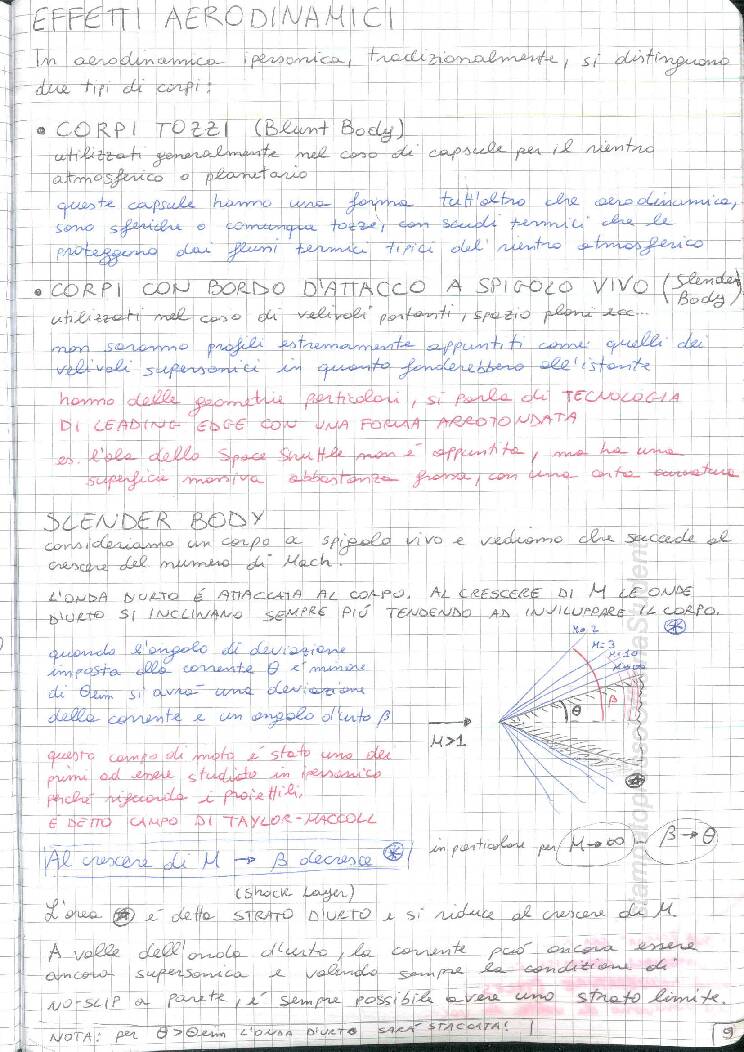 EFFETTI AERODINAMICI
In aerodinamica ipersonica, tradizionalmente, si distinguono
due tipi di corpi:
• CORPI TOZZI (Blunt Body)
utilizzati generalmente nel caso di capsule per il rientro
atmosferico o planetario
queste capsule hanno una forma tutt'altro che aerodinamica,
sono sferiche o comunque tozze, con scudi termici che le
proteggono dai flussi termici tipici del rientro atmosferico
• CORPI CON BORDO D'ATTACCO A SPIGOLO VIVO (Slender Body)
utilizzati nel caso di velivoli portanti, spazio plani ecc...
non saranno profili estremamente appuntiti come quelli dei
velivoli supersonici in quanto fonderebbero all'istante
hanno delle geometrie particolari, si parla di TECNOLOGIA
DI LEADING EDGE CON UNA FORMA ARROTONDATA
es. l'ala dello Space Shuttle non è appuntita, ma ha una
superficie massiva abbastanza grossa, con una certa curvatura
SLENDER BODY
consideriamo un corpo a spigolo vivo e vediamo che succede al
crescere del numero di Mach.
L'ONDA D'URTO É ATTACCATA AL CORPO. AL CRESCERE DI M LE ONDE
D'URTO SI INCLINANO SEMPRE PIÚ TENDENDO AD INVILUPPARE IL CORPO.
quando l'angolo di deviazione
imposta alla corrente θ é minore
di θlim si avrà una deviazione
della corrente e un angolo d'urto β
M=2
M=3
M=10
M=∞
θ
β
M>1
questo campo di moto é stato uno dei
primi ad essere studiato in ipersonico
perché riguarda i proiettili.
É DETTO CAMPO DI TAYLOR-MACCOLL
Al crescere di M → β decresce
in particolare per M→∞ - β→θ
(Shock Layer)
L'area é detta STRATO D'URTO e si riduce al crescere di M.
A valle dell'onda d'urto, la corrente può ancora essere
ancora supersonica e valendo sempre la condizione di
NO-SLIP a parete, é sempre possibile avere uno strato limite.
NOTA: per θ>θlim L'ONDA D'URTO SARÁ STACCATA!
9